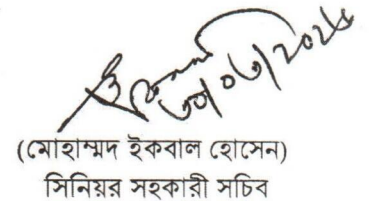 ৩০/০৬/২০২৫
(মোহাম্মদ ইকবাল হোসেন)
সিনিয়র সহকারী সচিব